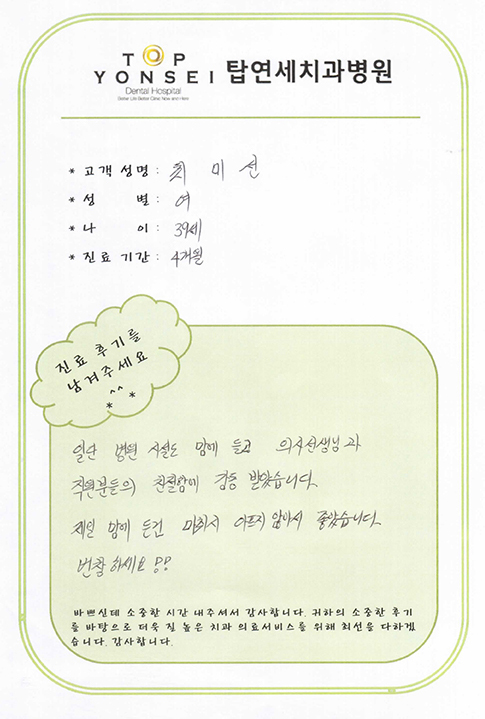 TOP
YONSEI 탑연세치과병원
Dental Hospital
Better Life Better Clinic Now and Here
* 고객성명 : 최 미 선
* 성 별 : 여
* 나 이 : 39세
* 진료기간 : 4개월
진료 후기를
남겨주세요
^^
* *
일단 병원 시설도 맘에 들고 의사선생님과
직원분들의 친절함에 감동 받았습니다.
제일 맘에 든건 마취시 아프지 않아서 좋았습니다.
번창하세요!!
바쁘신데 소중한 시간 내주셔서 감사합니다. 귀하의 소중한 후기
를 바탕으로 더욱 질 높은 치과 의료서비스를 위해 최선을 다하겠
습니다. 감사합니다.